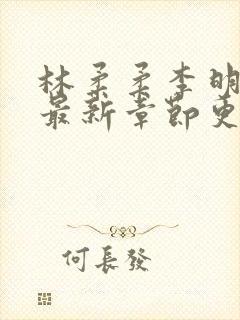 林柔柔李明
最新章節更
何長發